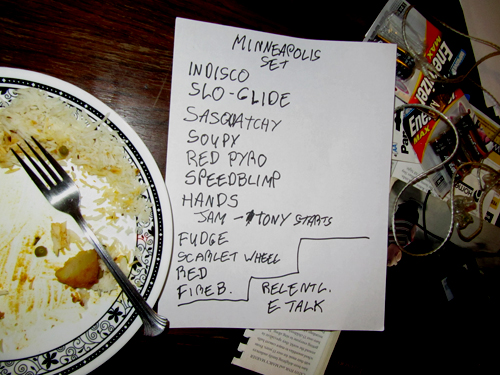 MINNEAPOLIS
SET
INDISCO
SLO-GLIDE
SASQUATCHY
SOUPY
RED PYRO
SPEEDBLIMP
HANDS
JAM - TONY STARTS
FUDGE
SCARLET WHEEL
RED
FIREB.
RELENTL.
E TALK
Energizer
MAX
Energizer
MAX